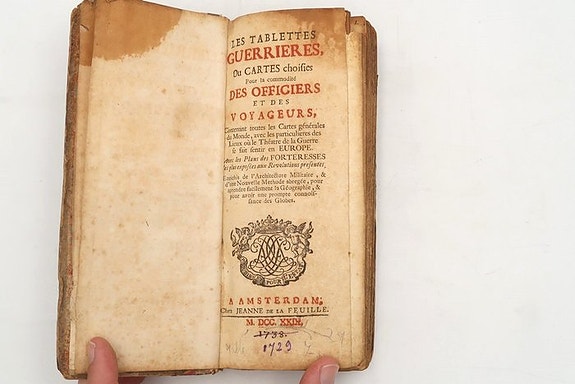 LES TABLETTES
GUERRIERES,
Ou CARTES choisies
Pour la commodité
DES OFFICIERS
ET DES
VOYAGEURS,
Contenant toutes les Cartes générales
du Monde, avec les particulieres des
Lieux où le Théatre de la Guerre
se fait sentir en EUROPE.
Avec les Plans des FORTERESSES
les plus exposées aux Revolutions presentes,
Enrichis de l'Architecture Militaire, &
d'une Nouvelle Methode abregée, pour
aprendre facilement la Géographie, &
pour avoir une prompte connois-
sance des Globes.
POUR
A AMSTERDAM,
Chez JEANNE DE LA FEUILLE.
M. DCC. XXIX.
1738.
1729